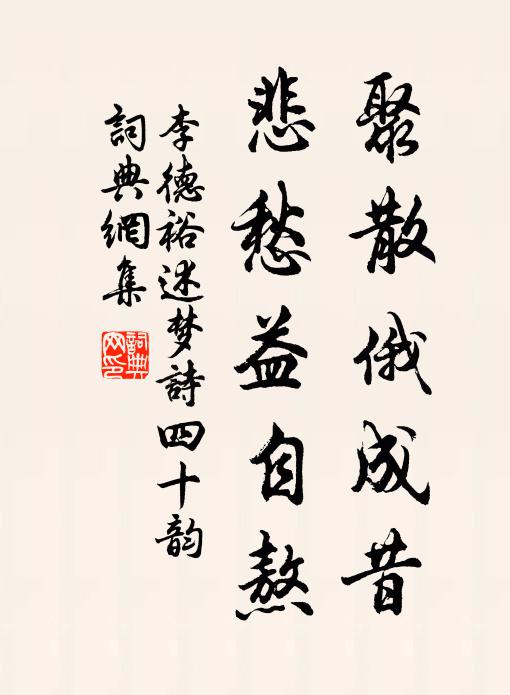 聚散俄成昔
悲愁益自熬
李德裕述梦詩四十韵
詞典網集
詞典網印